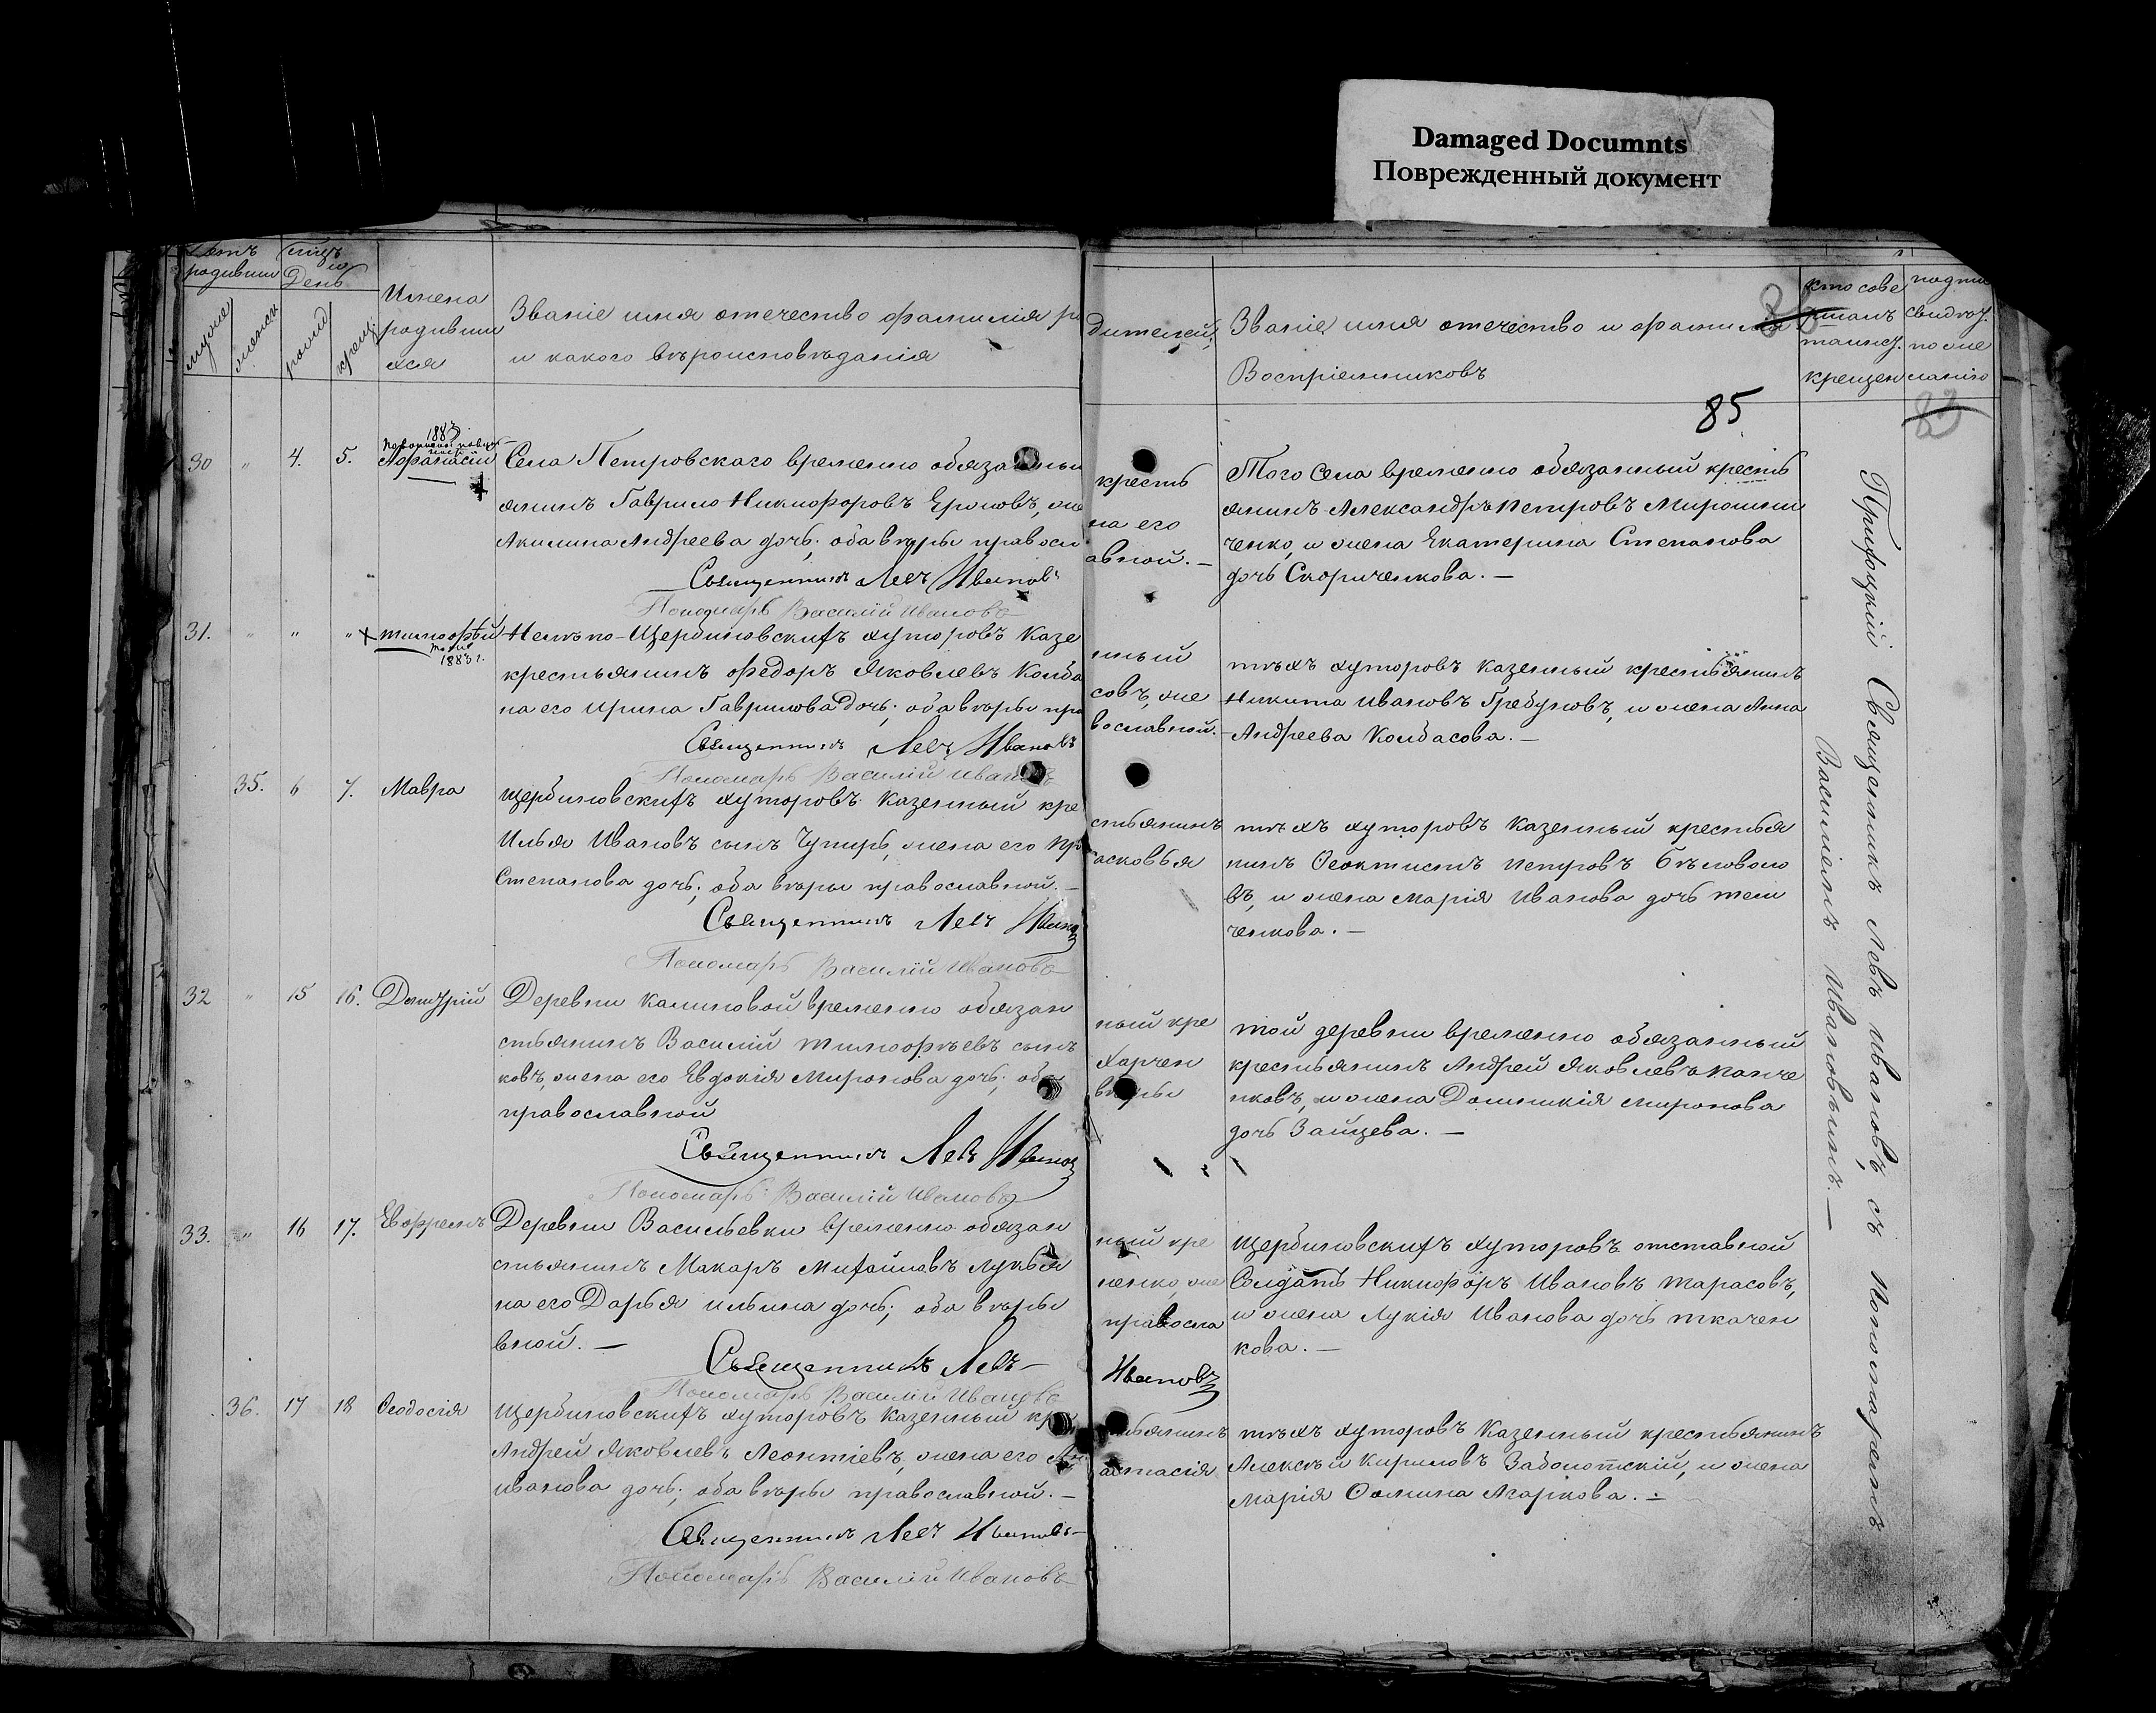 Damaged Documnts
Поврежденный документ
родивши
День
мужск
женск
рожд
крещ.
Имена
родивши
яся
Званіе имя отечество фамилія ро
дителей,
и какого вѣроисповѣданія
Званіе имя отечество и фамилія
Воспріемниковъ
кто сове
ршалъ
таинс.
крещен
85
30 " 4. 5. Афанасій
1883
Села Петровскаго временно обязанный кресть
янинъ Гаврило Никифоровъ Ермовъ, же на его
Акилина Андреева дочь; оба вѣры правосл авной. —
Священникъ Левъ Ивановъ
Пономарь Василій Ивановъ
Того Села временно обязанный кресть
янинъ Александръ Петровъ Мирошни
ченко, и жена Екатерина Степанова
дочь Скориченкова. —
31. " " " Тимофѣй
1883 г.
Щербиновскихъ хуторовъ казе нный
крестьянинъ Федоръ Яковлевъ Колба совъ, же
на его Ирина Гаврилова дочь; оба вѣры пра вославной. —
Священникъ Левъ Ивановъ
Пономарь Василій Ивановъ
тѣхъ хуторовъ казенный крестьянинъ
Никита Ивановъ Гребуновъ, и жена Анна
Андреева Колбасова. —
35. 6 7. Мавра
Щербиновскихъ хуторовъ казенный кре стьянинъ
Илья Ивановъ сынъ Чупирь, жена его Пр асковья
Степанова дочь; оба вѣры православной. —
Священникъ Левъ Ивановъ
Пономарь Василій Ивановъ
тѣхъ хуторовъ казенный крестья
нинъ Ѳеоктистъ Петровъ Бѣловоло
въ, и жена Марія Иванова дочь тем
ченкова. —
32 " 15 16. Димитрій
Деревни Калиновой временно обязан ный кре
стьянинъ Василій Тимофѣевъ сынъ Харчен
ковъ, жена его Евдокія Миронова дочь; оба вѣры
православной
Священникъ Левъ Ивановъ
Пономарь Василій Ивановъ
той деревни временно обязанный
крестьянинъ Андрей Яковлевъ Панче
нковъ, и жена Домникія Миронова
дочь Зайцева. —
33. " 16 17. Евфремъ
Деревни Васильевки временно обязан ный кре
стьянинъ Макаръ Михайловъ Лукья ненко, же
на его Дарья Ильина дочь; оба вѣры правосла
вной. —
Священникъ Левъ Ивановъ
Пономарь Василій Ивановъ
Щербиновскихъ хуторовъ отставной
Солдатъ Никифоръ Ивановъ Тарасовъ,
и жена Лукія Иванова дочь ткачен
кова. —
36. 17 18 Ѳеодосія
Щербиновскихъ хуторовъ казенный кре стьянинъ
Андрей Яковлевъ Леонтіевъ, жена его Ан астасія
Иванова дочь; оба вѣры православной. —
Священникъ Левъ Ивановъ
Пономарь Василій Ивановъ
тѣхъ хуторовъ казенный крестьянинъ
Алексѣй Кириловъ Заболотскій, и жена
Марія Ѳомина Агаркова. —
Священникъ Левъ Ивановъ, съ Пономаремъ
Василіемъ Ивановымъ. —